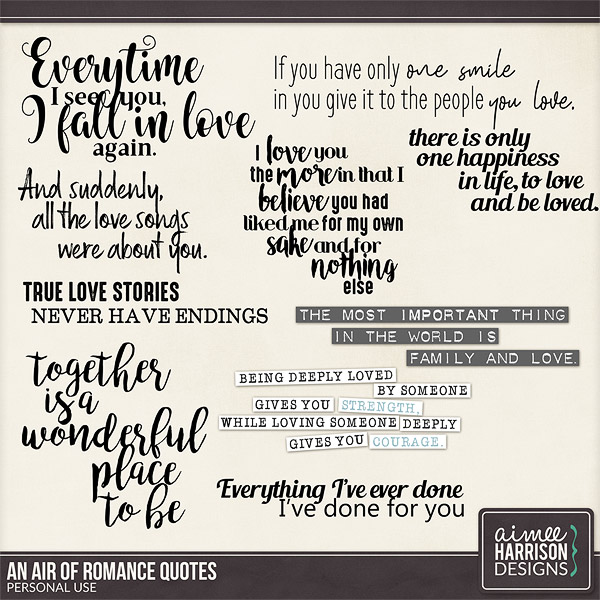 Everytime
I see you,
I fall in love
again.
If you have only one smile
in you give it to the people you love.
there is only
one happiness
in life, to love
and be loved.
I love you
the more in that I
believe you had
liked me for my own
sake and for
nothing
else
And suddenly,
all the love songs
were about you.
TRUE LOVE STORIES
NEVER HAVE ENDINGS
THE MOST IMPORTANT THING
IN THE WORLD IS
FAMILY AND LOVE.
together
is a
wonderful
place
to be
BEING DEEPLY LOVED
BY SOMEONE
GIVES YOU STRENGTH,
WHILE LOVING SOMEONE DEEPLY
GIVES YOU COURAGE.
Everything I've ever done
I've done for you
aimee
HARRISON
DESIGNS
AN AIR OF ROMANCE QUOTES
PERSONAL USE